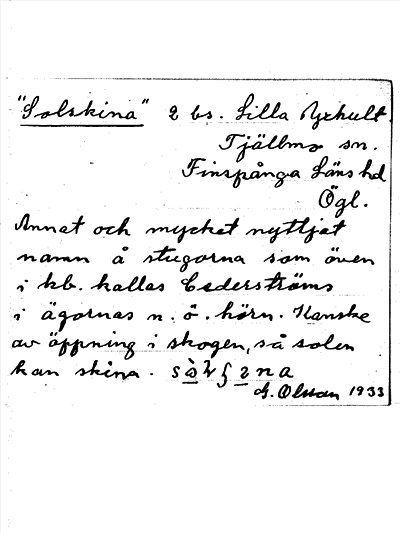 "Solskina" 2 bs. Lilla Yxhult
Tjällmo sn.
Finspånga Läns hd
Ögl.
Annat och mycket nyttjat
namn å stugorna som även
i kb. kallas Cederströms
i ägornas n. ö. hörn. Kanske
av öppning i skogen, så solen
kan skina.
G. Olsson 1933